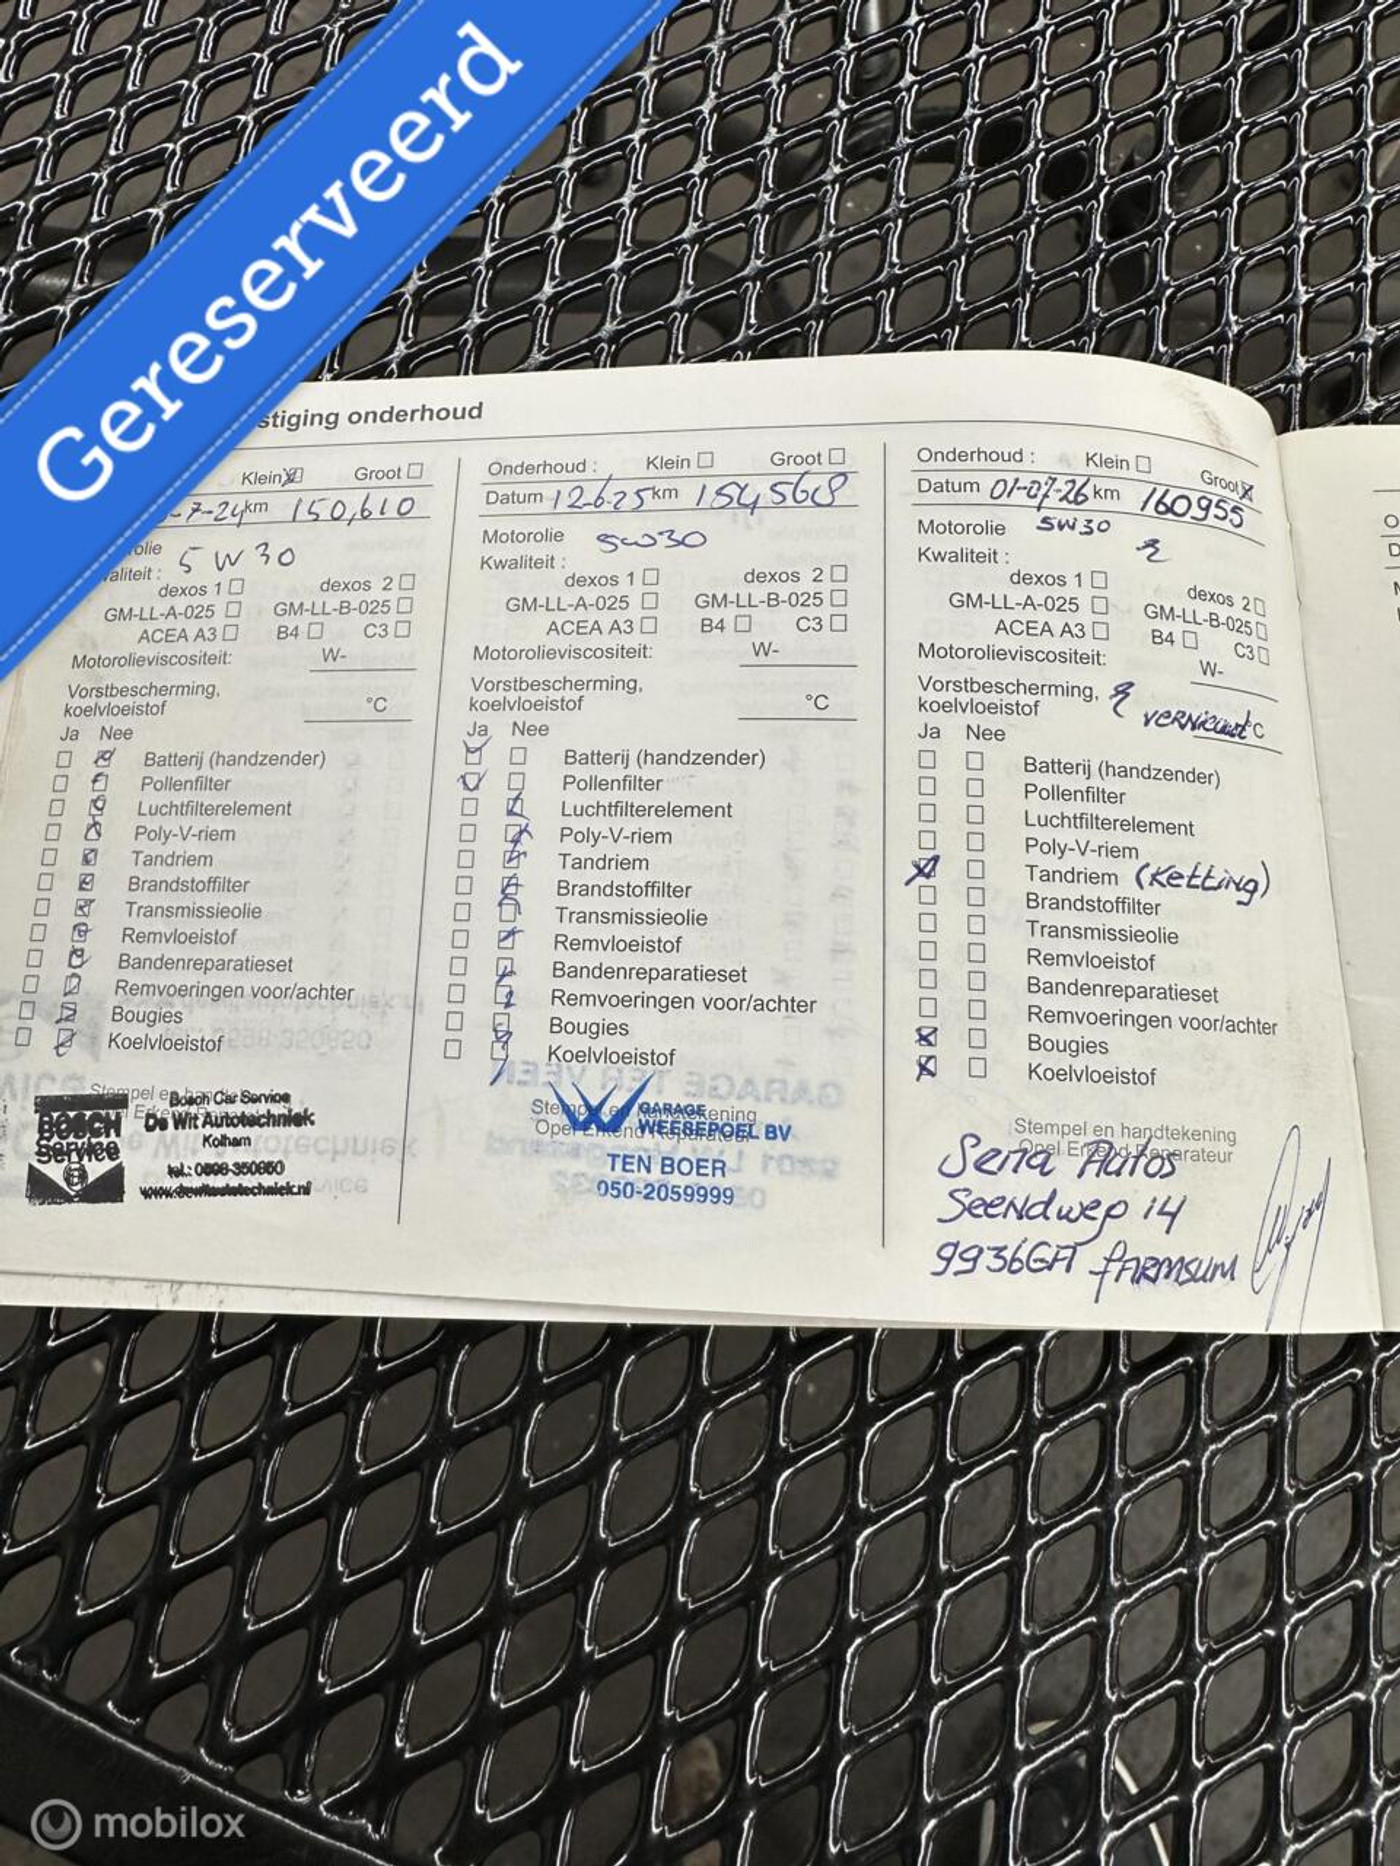 Gereserveerd
stiging onderhoud
Klein Groot
-7-24 km 150,610
olie 5W30
aliteit :
dexos 1 dexos 2
GM-LL-A-025 GM-LL-B-025
ACEA A3 B4 C3
Motorolieviscositeit: W-
Vorstbescherming,
koelvloeistof °C
Ja Nee
Batterij (handzender)
Pollenfilter
Luchtfilterelement
Poly-V-riem
Tandriem
Brandstoffilter
Transmissieolie
Remvloeistof
Bandenreparatieset
Remvoeringen voor/achter
Bougies
Koelvloeistof
BOSCH
Service
Bosch Car Service
De Wit Autotechniek
Kolham
tel.: 0598-350850
www.dewitautotechniek.nl
Onderhoud : Klein Groot
Datum 12-6-25 km 154568
Motorolie 5W30
Kwaliteit :
dexos 1 dexos 2
GM-LL-A-025 GM-LL-B-025
ACEA A3 B4 C3
Motorolieviscositeit: W-
Vorstbescherming,
koelvloeistof °C
Ja Nee
Batterij (handzender)
Pollenfilter
Luchtfilterelement
Poly-V-riem
Tandriem
Brandstoffilter
Transmissieolie
Remvloeistof
Bandenreparatieset
Remvoeringen voor/achter
Bougies
Koelvloeistof
Stempel en handtekening
Opel Erkend Reparateur
GARAGE
WEESEPOEL BV
TEN BOER
050-2059999
Onderhoud : Klein Groot
Datum 01-07-26 km 160955
Motorolie 5W30
Kwaliteit :
dexos 1 dexos 2
GM-LL-A-025 GM-LL-B-025
ACEA A3 B4 C3
Motorolieviscositeit: W-
Vorstbescherming,
koelvloeistof vernieuwd °C
Ja Nee
Batterij (handzender)
Pollenfilter
Luchtfilterelement
Poly-V-riem
Tandriem (Ketting)
Brandstoffilter
Transmissieolie
Remvloeistof
Bandenreparatieset
Remvoeringen voor/achter
Bougies
Koelvloeistof
Stempel en handtekening
Opel Erkend Reparateur
Sena Autos
Seendweg 14
9936GA farmsum
mobilox